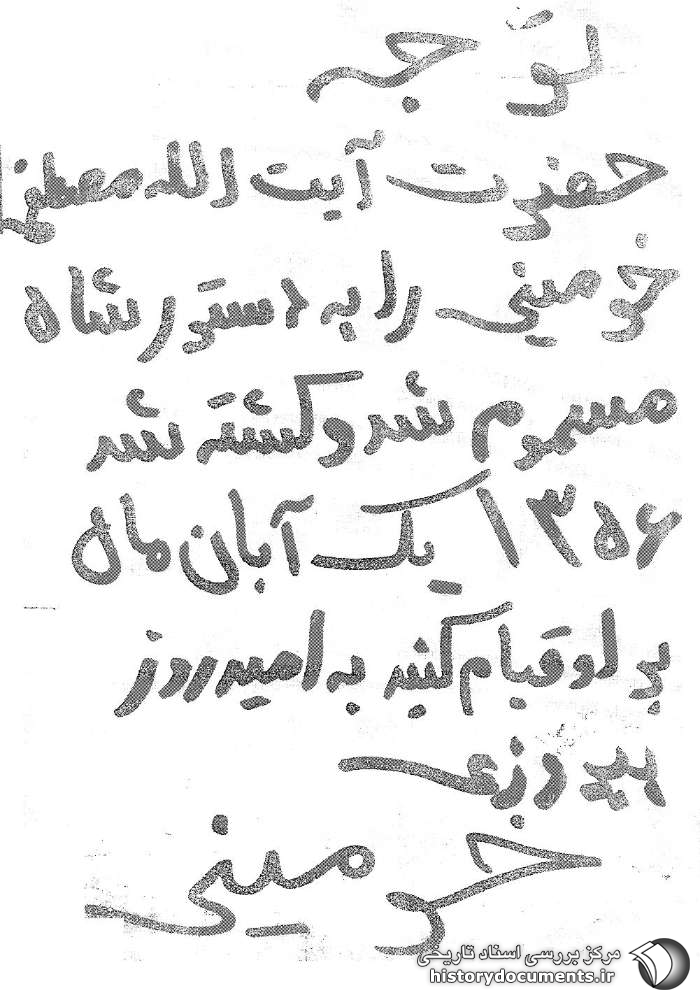 توّجه
حضرت آیت الله مصطفی
خومینی را به دستور شاه
مسموم شد و کشته شد
۱۳۵۶ یک آبان ماه
بر او قیام کنید به امید روز
پیروزی
خومینی
مرکز بررسی اسناد تاریخی
historydocuments.ir